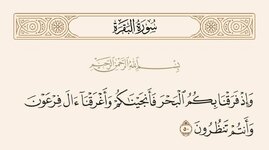 سُورَةُ البَقَرَةِ
بِسْمِ اللَّهِ الرَّحْمَٰنِ الرَّحِيمِ
وَإِذْ فَرَقْنَا بِكُمُ ٱلْبَحْرَ فَأَنجَيْنَٰكُمْ وَأَغْرَقْنَآ ءَالَ فِرْعَوْنَ
وَأَنتُمْ تَنظُرُونَ ٥٠